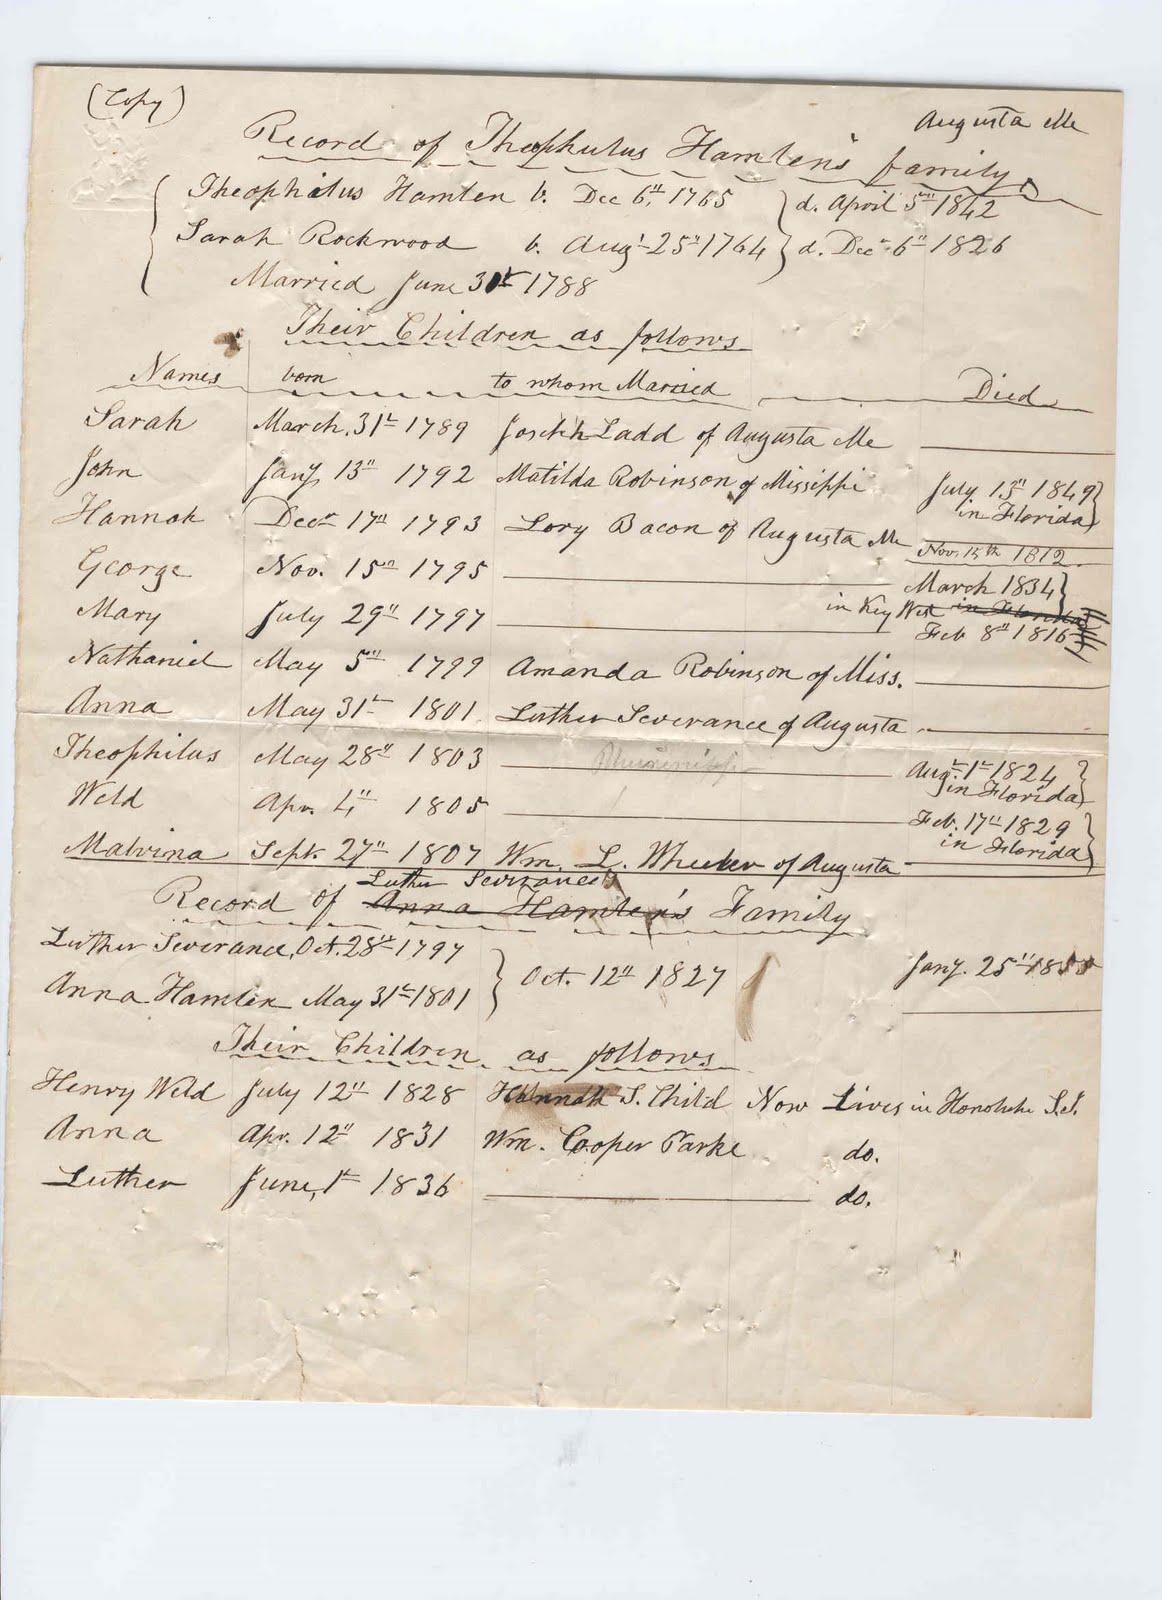 (Copy)
Augusta Me
Record of Theophulus Hamlen's family.
Theophilus Hamlen b. Dec 6" 1765 } d. April 5" 1842
Sarah Rockwood b. Aug't 25" 1764 } d. Dec 6" 1826
Married June 1788
Their Children as follows
Names born to whom Married Died
Sarah March, 31st 1789 Joseph Ladd of Augusta Me
John Jany 13" 1792 Matilda Robinson of Missippi July 13" 1849 }
in Florida
Hannah Decr 17" 1793 Lory Bacon of Augusta Me Nov. 15th 1812.
George Nov. 15" 1795 March 1834 }
in Key West in Florida
Mary July 29" 1797 Feb 8" 1816
Nathaniel May 5" 1799 Amanda Robinson of Miss.
Anna May 31st 1801 Luther Severance of Augusta
Theophilus May 28" 1803 Augt 1st 1824 }
in Florida
Weld Apr. 4" 1805 Feb. 17" 1829 }
in Florida
Malvina Sept. 27" 1807 Wm. L. Wheeler of Augusta
Luther Severance's
Record of Anna Hamlen's Family
Luther Severance, Oct. 28" 1797 } Oct. 12" 1827 Jany. 25" 1855
Anna Hamlen May 31st 1801
Their Children as follows
Henry Weld July 12" 1828 Hannah S. Child Now Lives in Honolulu S.I.
Anna Apr. 12" 1831 Wm. Cooper Parke do.
Luther June, 1st 1836 do.